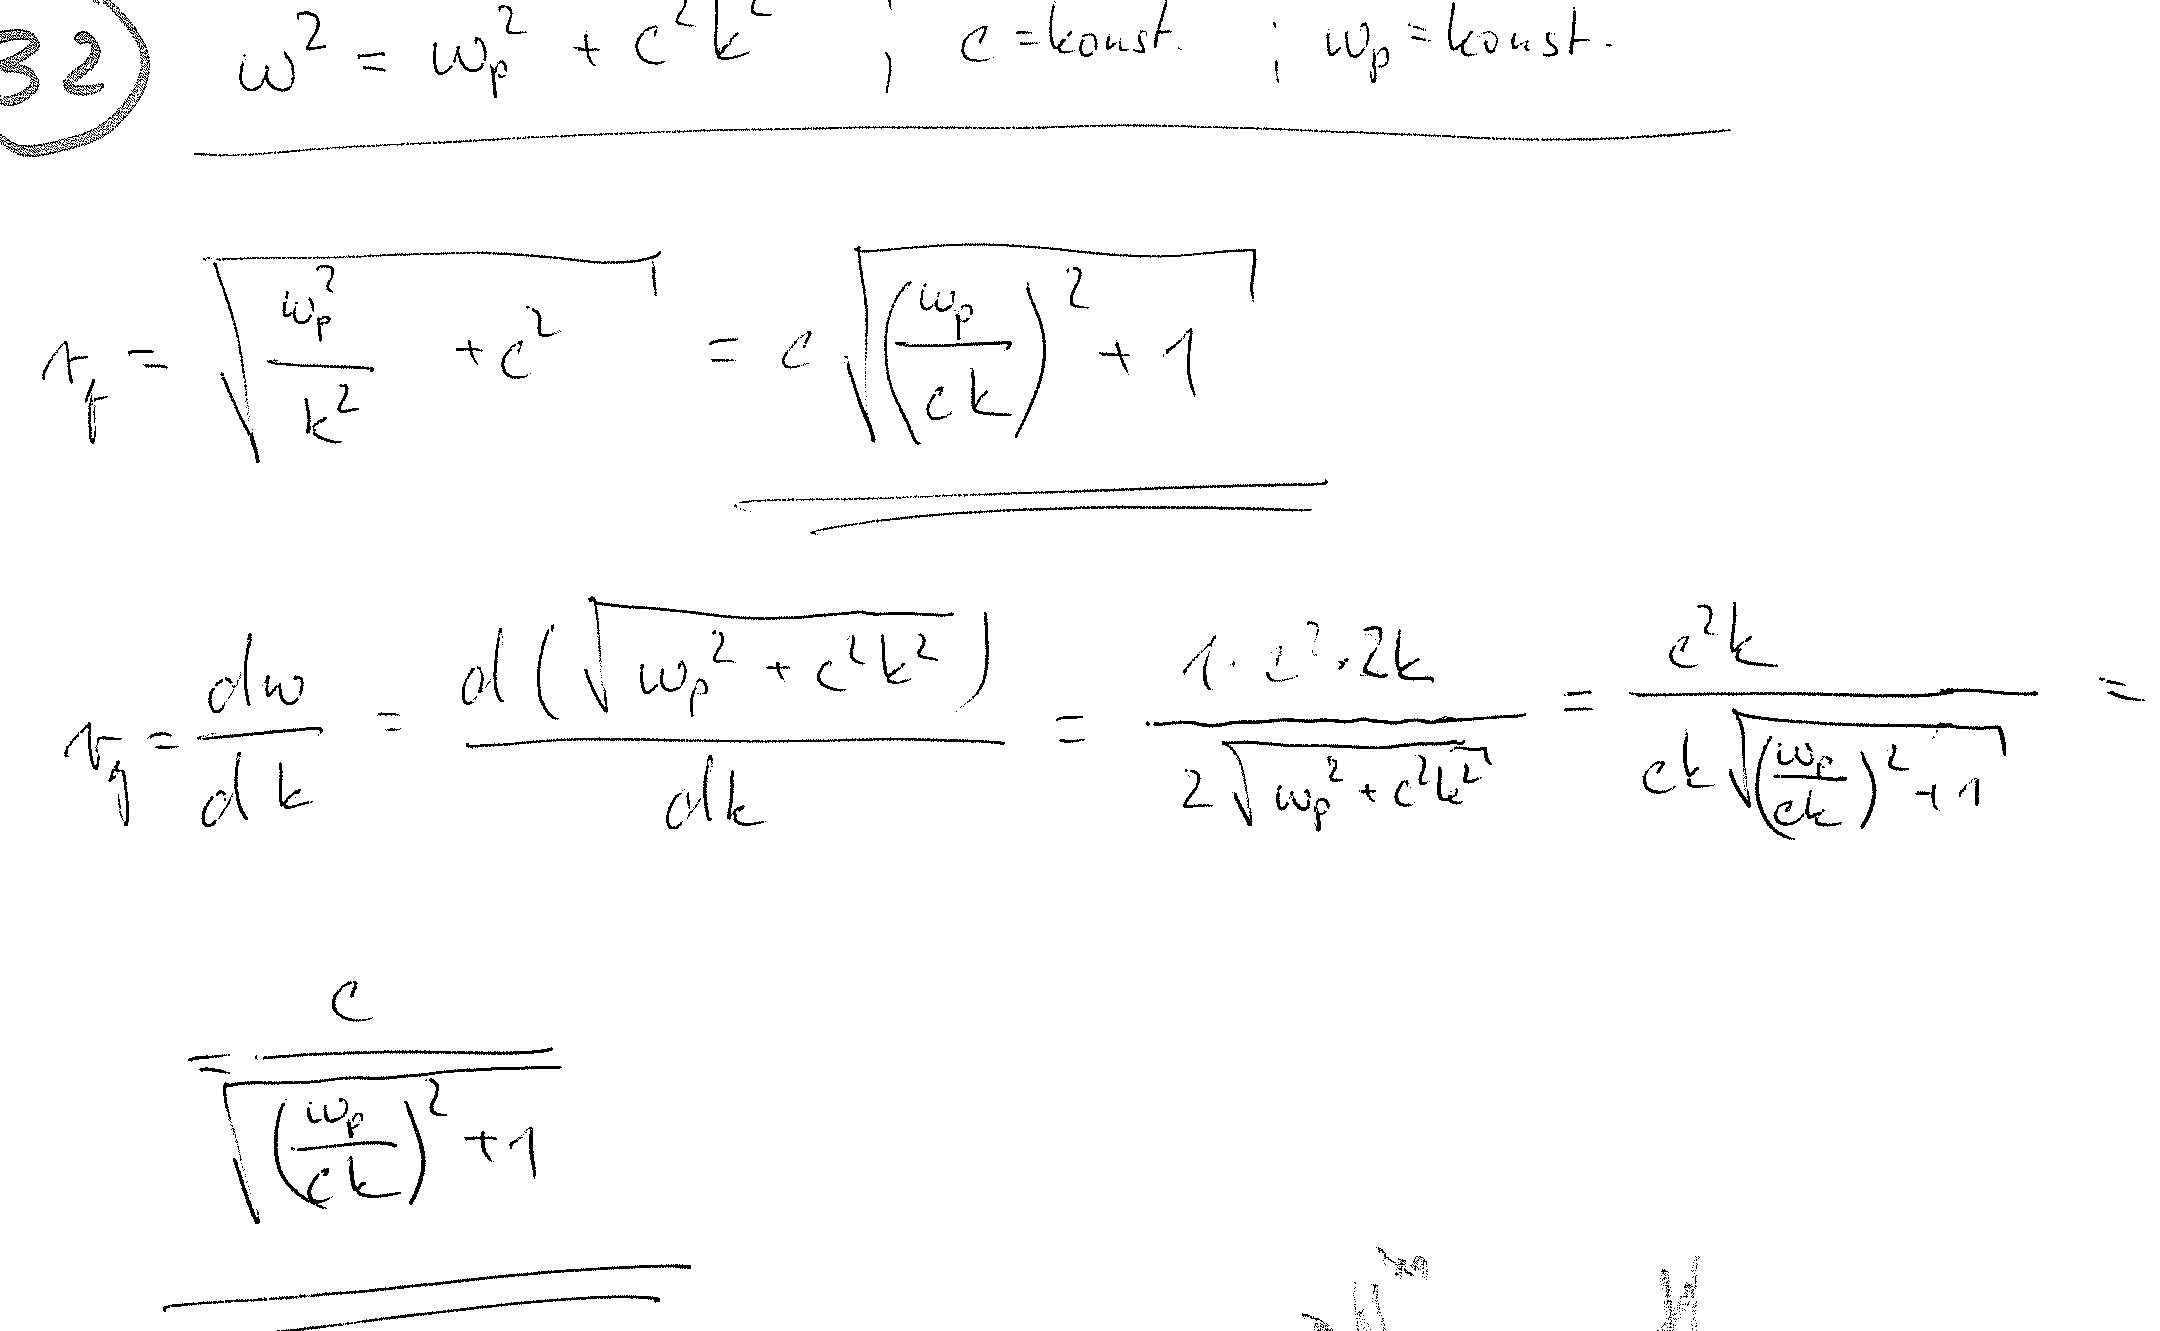 32) ω² = ω_p² + c²k² ; c = konst. ; ω_p = konst.
v_f = √(ω_p²/k² + c²) = c √((ω_p/ck)² + 1)
v_g = dω/dk = d(√(ω_p² + c²k²))/dk = 1·c²·2k / 2√(ω_p² + c²k²) = c²k / ck√((ω_p/ck)² + 1) =
= c / √((ω_p/ck)² + 1)